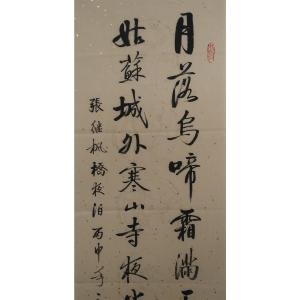 月落烏啼霜滿
姑蘇城外寒山寺夜
張継楓橋夜泊丙申年